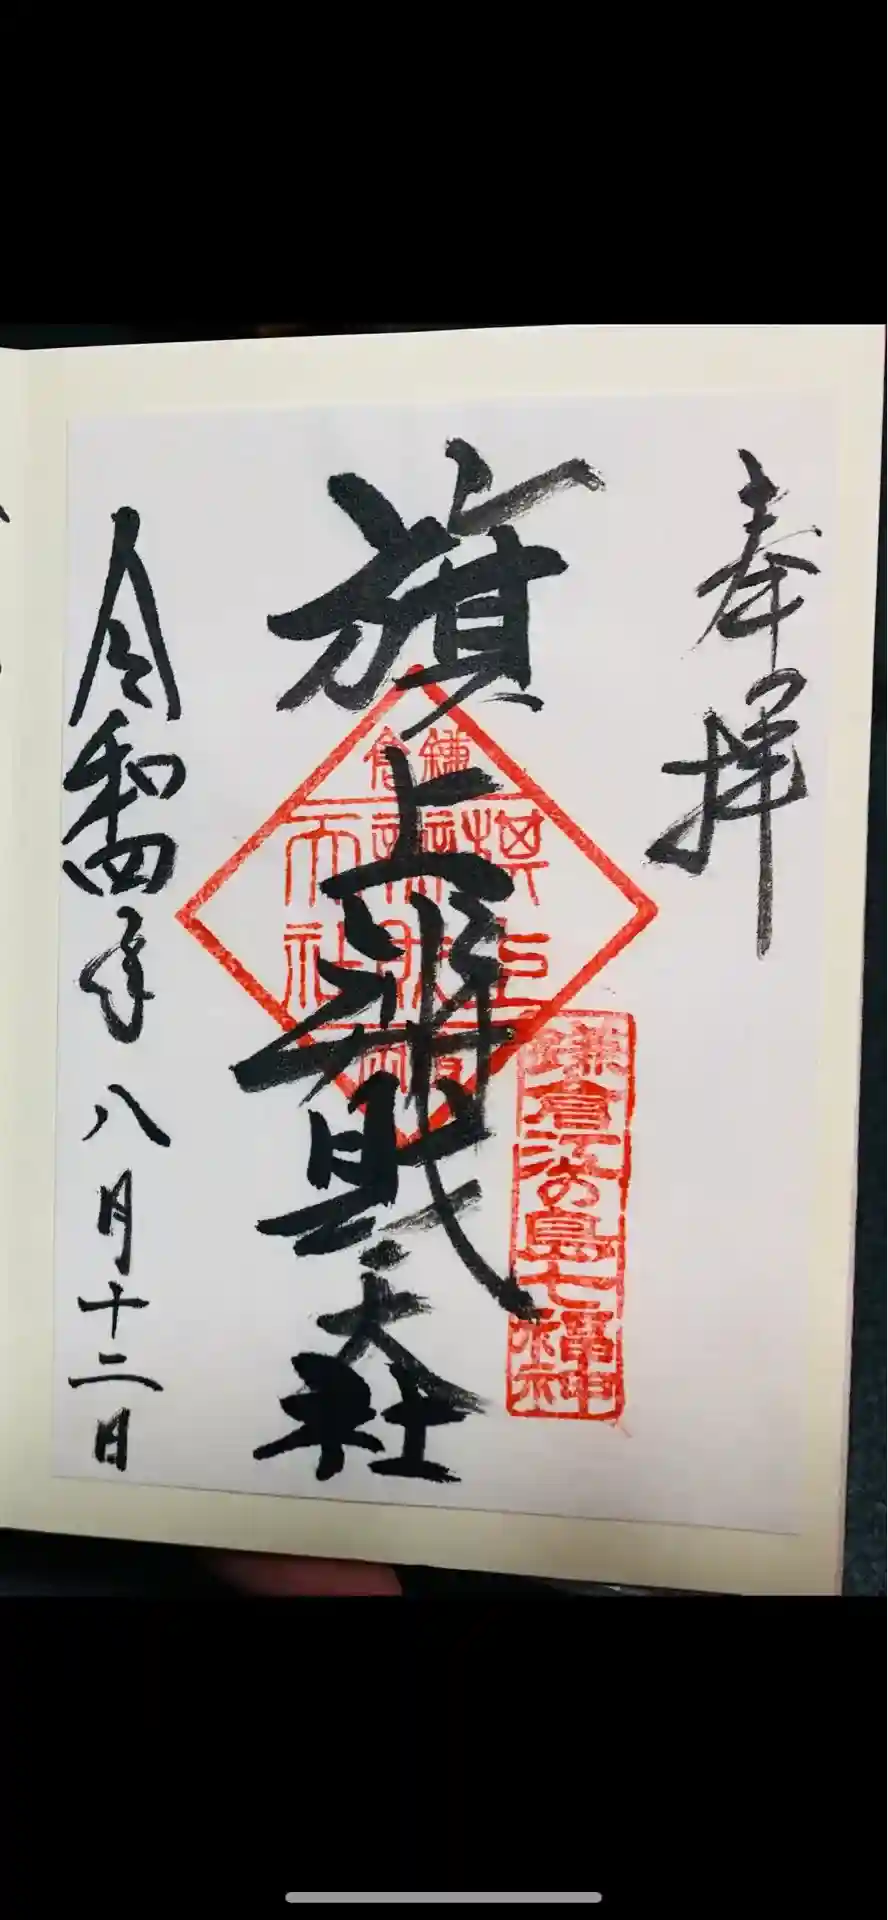 奉拝
旗上弁財天社
鎌倉
旗上
弁財天社
鎌倉江の島七福神
令和四年八月十二日